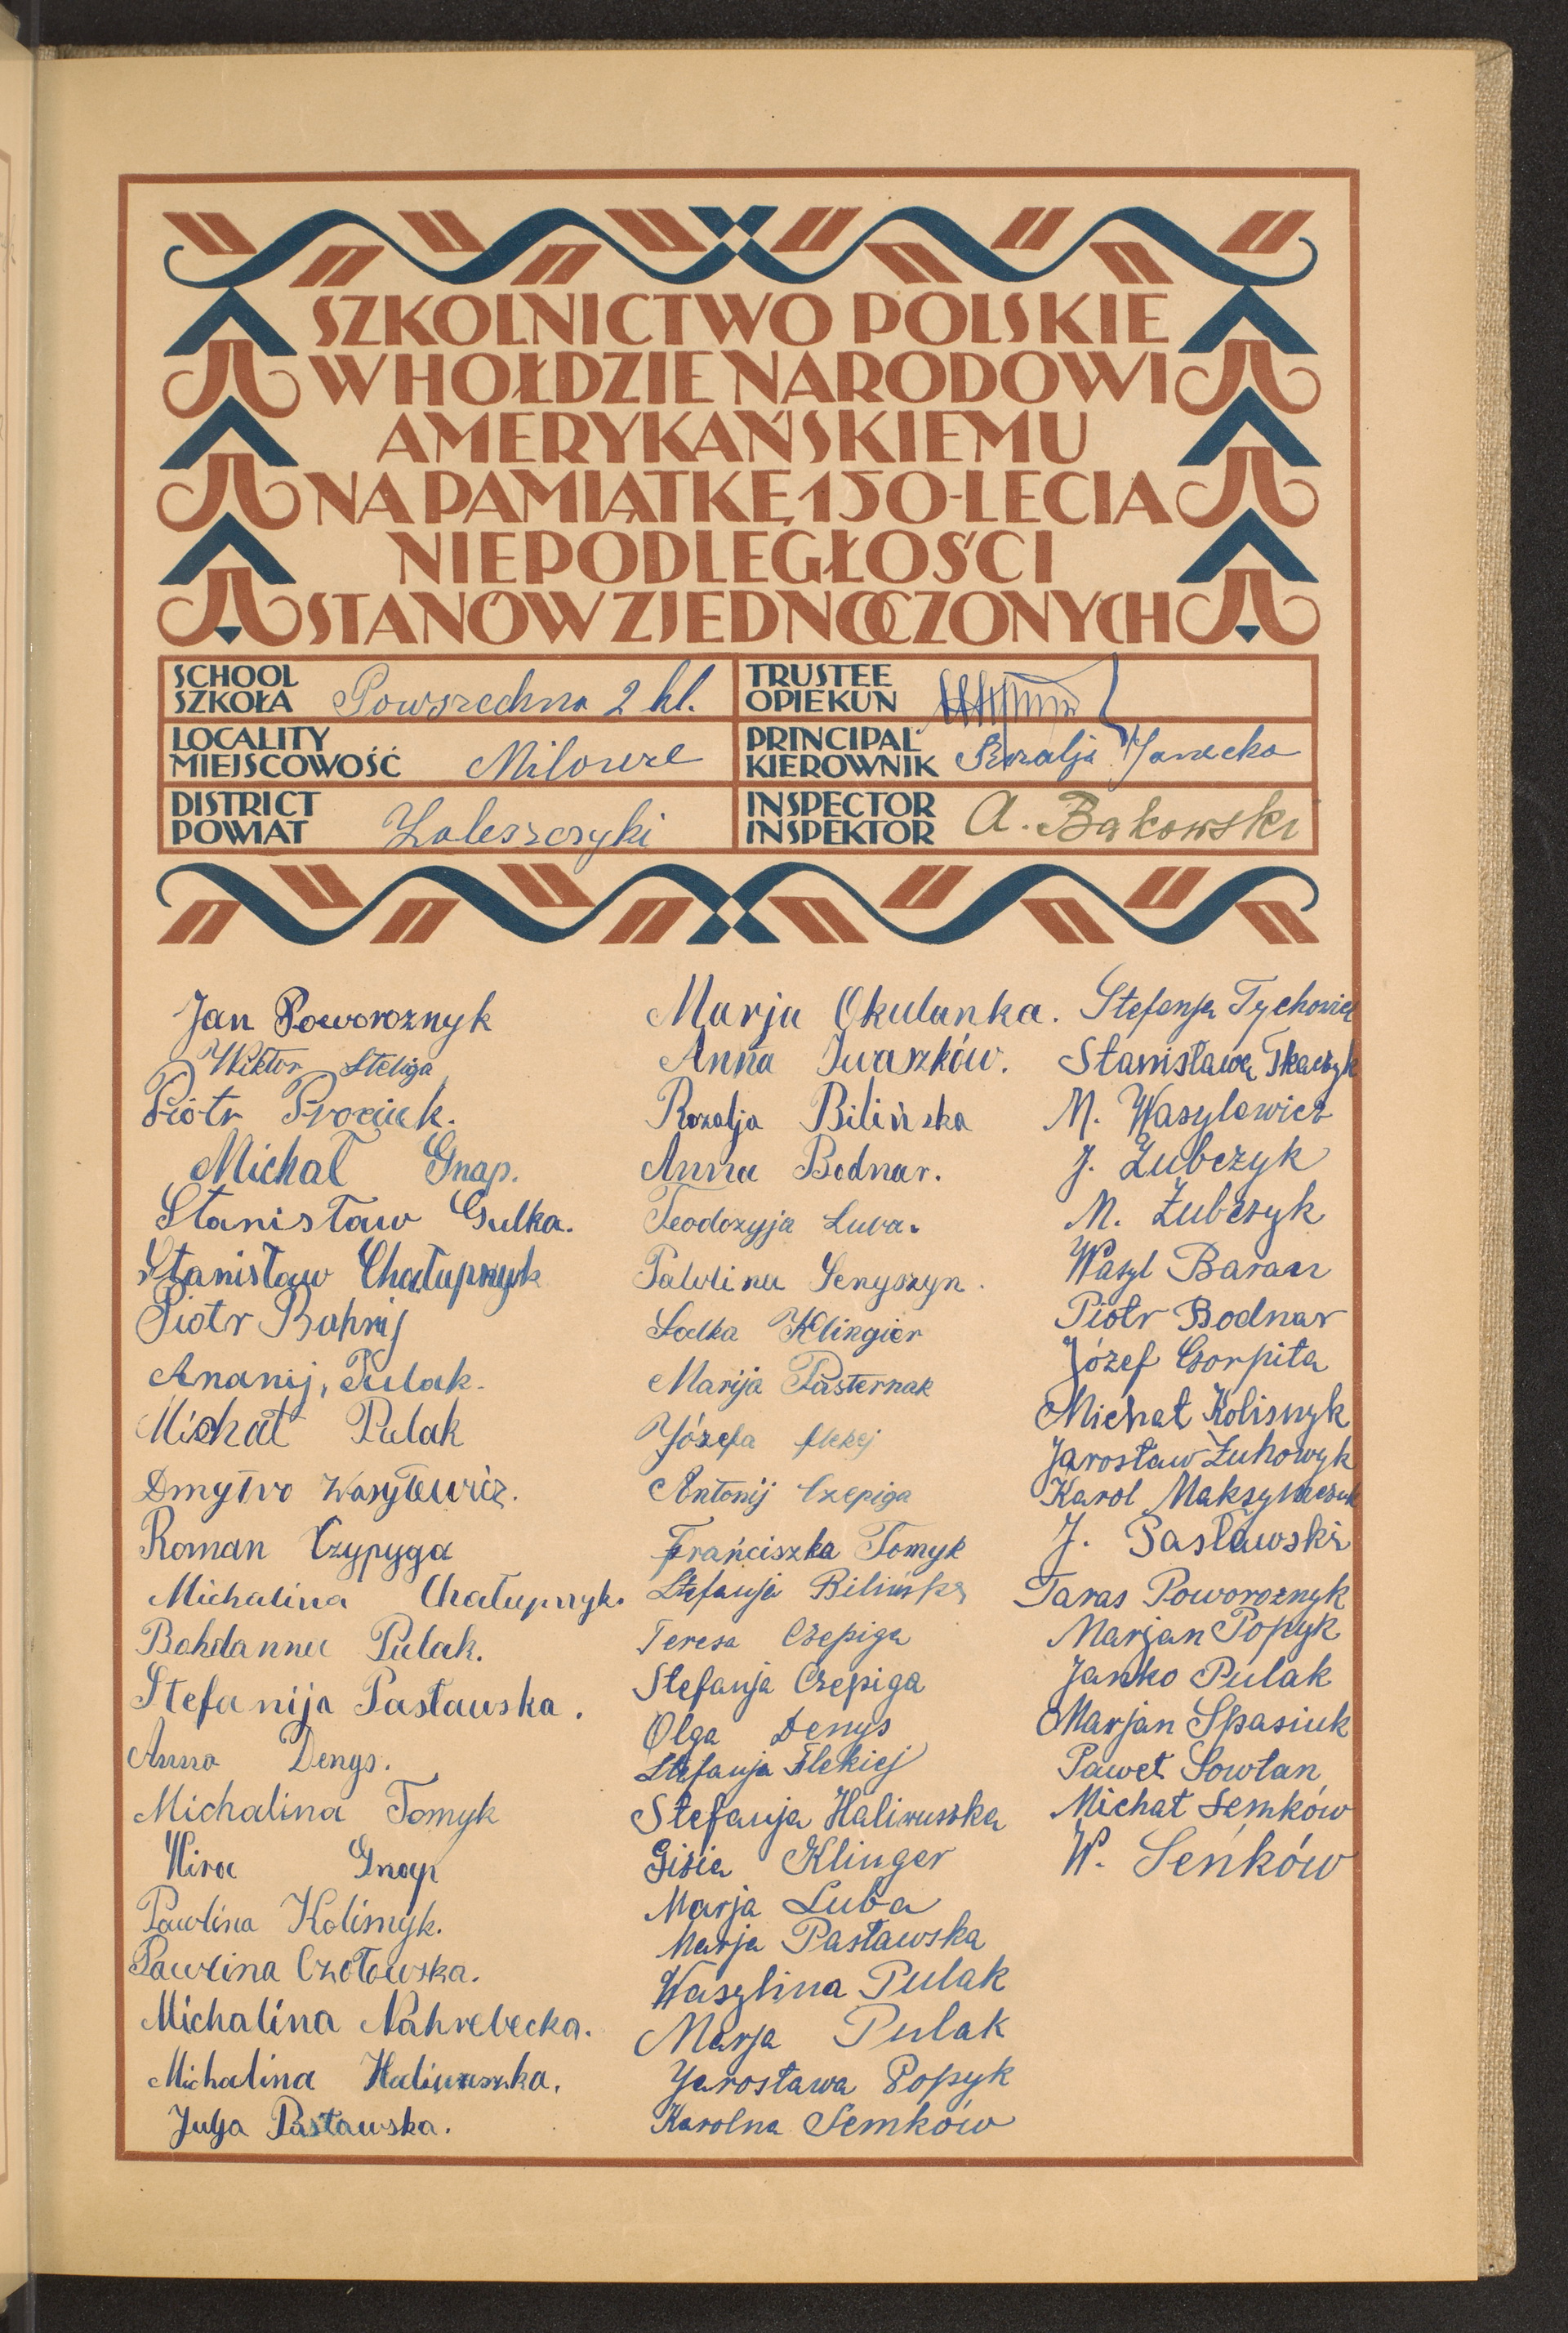 SZKOLNICTWO POLSKIE
W HOŁDZIE NARODOWI
AMERYKAŃSKIEMU
NA PAMIĄTKĘ 150-LECIA
NIEPODLEGŁOŚCI
STANÓW ZJEDNOCZONYCH
SCHOOL
SZKOŁA Powszechna 2 kl.
TRUSTEE
OPIEKUN
LOCALITY
MIEJSCOWOŚĆ Milowce
PRINCIPAL
KIEROWNIK Rozalja Janecka
DISTRICT
POWIAT Zaleszczyki
INSPECTOR
INSPEKTOR A. Bąkowski
Jan Poworoznyk
Wiktor Steliga
Piotr Prociuk.
Michał Gnap.
Stanisław Gulka.
Stanisław Chałupnyk
Piotr Bahrij
Ananij, Pulak.
Michał Pulak
Dmytro Wasyłewicz.
Roman Czypyga
Michalina Chałupnyk.
Bohdanna Pulak.
Stefanija Pasławska.
Anna Denys.
Michalina Tomyk
Wira Gnap
Pawlina Kolisnyk.
Pawlina Czołowska.
Michalina Nahrebecka.
Michalina Haliwaszka.
Julja Pasławska.
Marja Okulanka.
Anna Iwaszków.
Rozalja Bilińska
Anna Bodnar.
Teodozyja Luba.
Pawlina Senyszyn.
Sadka Klingier
Marija Pasternak
Józefa Flekej
Antonij Czepiga
Frańciszka Tomyk
Stefanja Bilińska
Teresa Czepiga
Stefanja Czepiga
Olga Denys
Stefanja Flekiej
Stefanja Haliwuszka
Gizia Klinger
Marja Luba
Marja Pasławska
Waszlina Pulak
Marja Pulak
Jarosława Popyk
Karolna Semków
Stefanja Tychowicz
Stanisława Tkaczyk
M. Wasylewicz
J. Zubczyk
M. Zubczyk
Wasyl Baran
Piotr Bodnar
Józef Czorpita
Michał Kolisnyk
Jarosław Żuhowyk
Karol Maksymczuk
J. Pasławski
Taras Poworoznyk
Marjan Popyk
Janko Pulak
Marjan Spasiuk
Paweł Sowłan
Michał Semków
W. Seńków